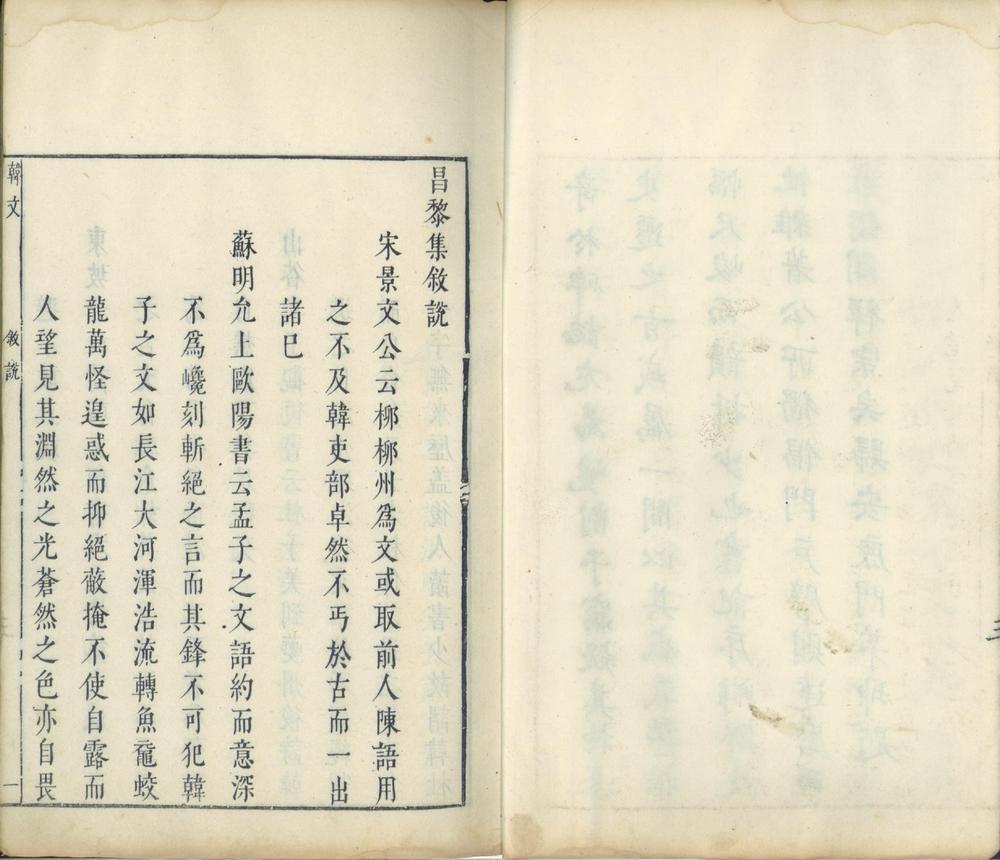 昌黎集敘說
宋景文公云柳柳州爲文或取前人陳語用
之不及韓吏部卓然不丐於古而一出
諸已
蘇明允上歐陽書云孟子之文語約而意深
不爲巉刻斬絕之言而其鋒不可犯韓
子之文如長江大河渾浩流轉魚黿蛟
龍萬怪遑惑而抑絕蔽掩不使自露而
人望見其淵然之光蒼然之色亦自畏
韓文
敘說
一